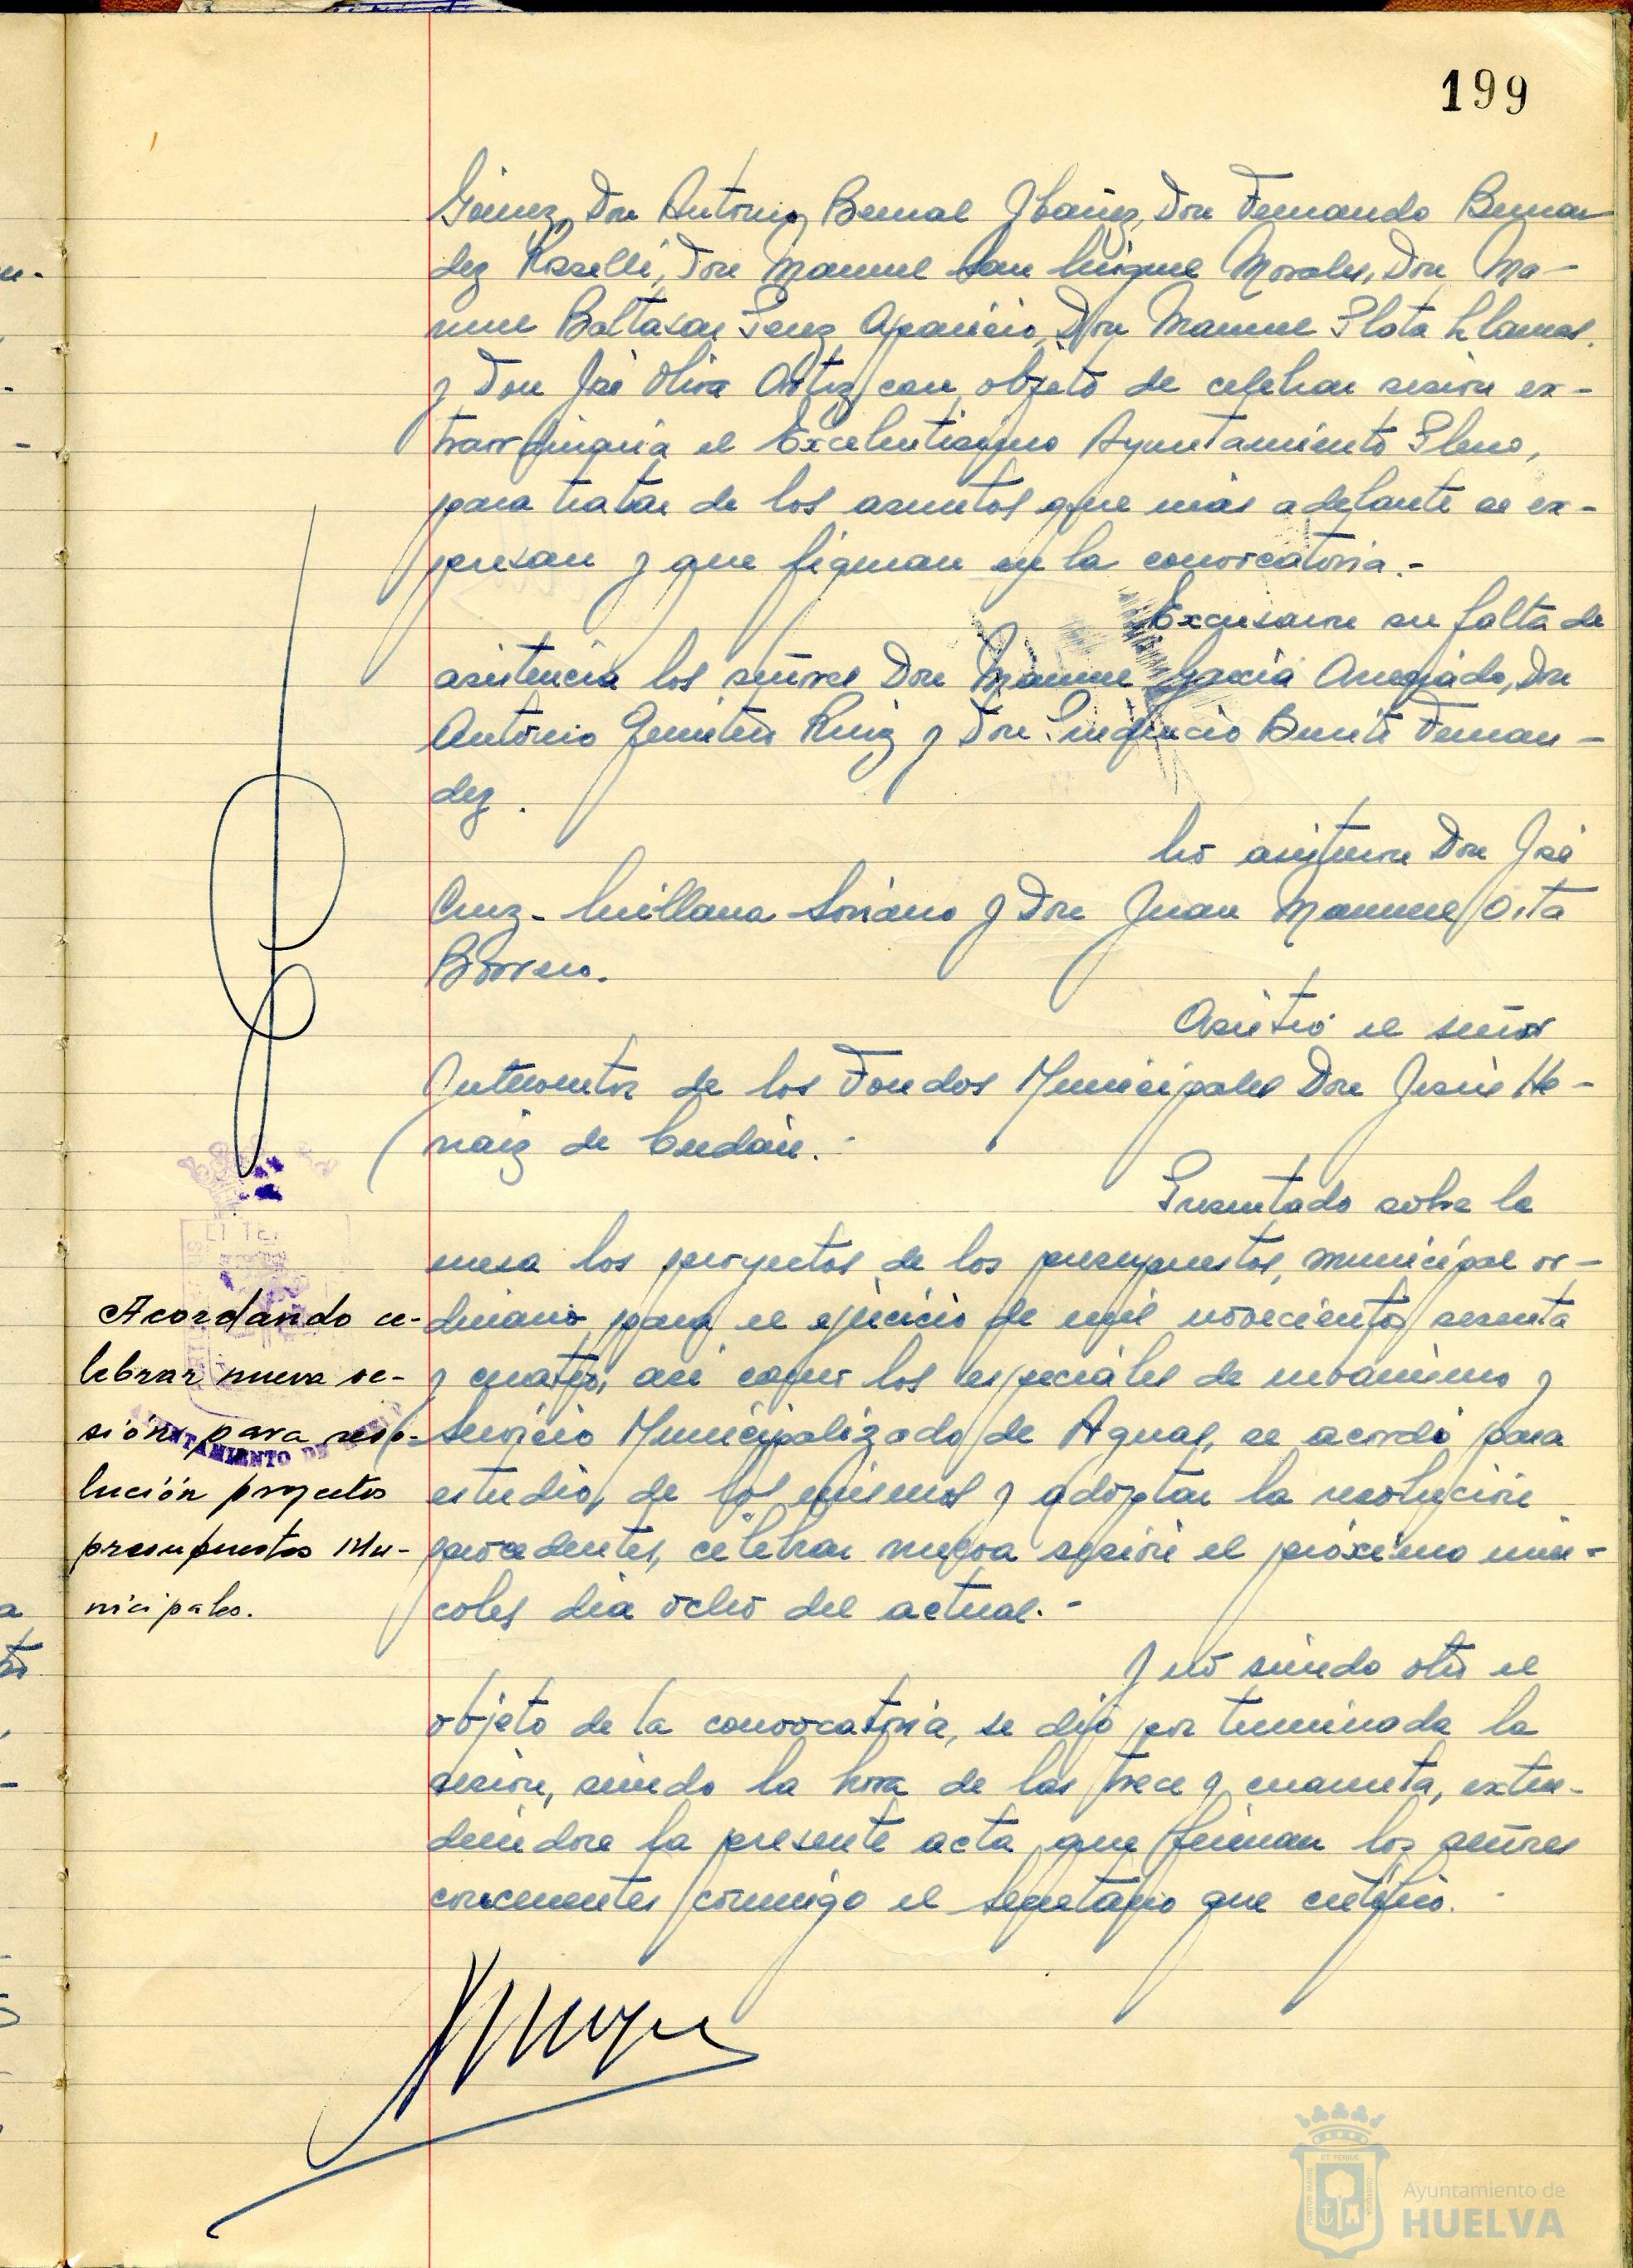 199
Gómez, Don Antonio Bernal Ibáñez, Don Fernando Bernan
dez Rosselli, Don Manuel San Miguel Morales, Don Ma-
nuel Baltasar Perez Aparicio, Don Manuel Plata Llamas,
y Don José Oliva Ortiz, con objeto de celebrar sesion ex-
traordinaria el Excelentisimo Ayuntamiento Pleno,
para tratar de los asuntos que más adelante se ex-
presan y que figuran en la convocatoria.-
Excusaron su falta de
asistencia los señores Don Manuel Garcia Anegado, Don
Antonio Ruiz y Don Benito Fernan-
dez.
No asistieron Don José
Cruz-Millana Soriano y Don Juan Manuel Orta
Borrero.
Asistió el señor
Interventor de los Fondos Municipales Don Jesús He-
naiz de Cerdán.-
Presentado sobre la
mesa los proyectos de los presupuestos, municipal or-
dinario para el ejercicio de mil novecientos sesenta
y cuatro, asi como los especiales de urbanismo y
Servicio Municipalizado de Aguas, se acordó para
estudio, de los mismos y adoptar la resolución
procedentes, celebrar nueva sesión el próximo miér-
coles dia ocho del actual.-
Acordando ce-
lebrar nueva se-
sión para reso-
lución proyectos
presupuestos Mu-
nicipales.
AYUNTAMIENTO DE
Y nó siendo otro el
objeto de la convocatoria, se dió por terminada la
sesion, siendo la hora de las trece y cuarenta, exten-
diendose la presente acta que firman los señores
concurrentes conmigo el Secretario que certifico.-
Ayuntamiento de
HUELVA